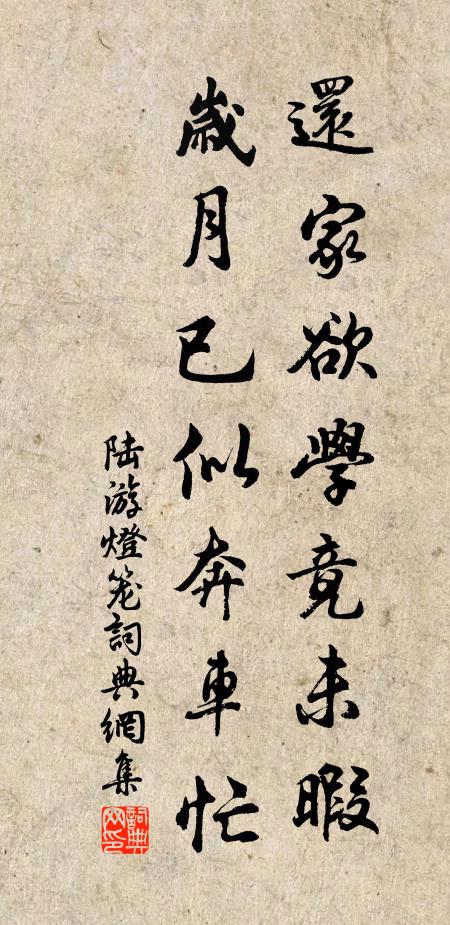 還家欲學竟未暇
歲月已似奔車忙
陸游燈笼詞典網集
詞典網印